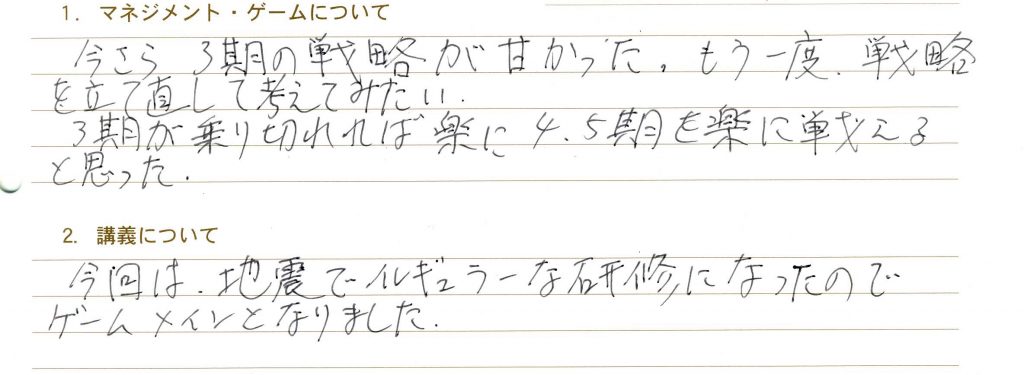 1. マネジメント・ゲームについて
今さら 3期の戦略が甘かった。もう一度、戦略
を立て直して考えてみたい.
3期が乗り切れれば楽に4.5期を楽に戦える
と思った.
2. 講義について
今回は、地震でイレギュラーな研修になったので
ゲームメインとなりました.